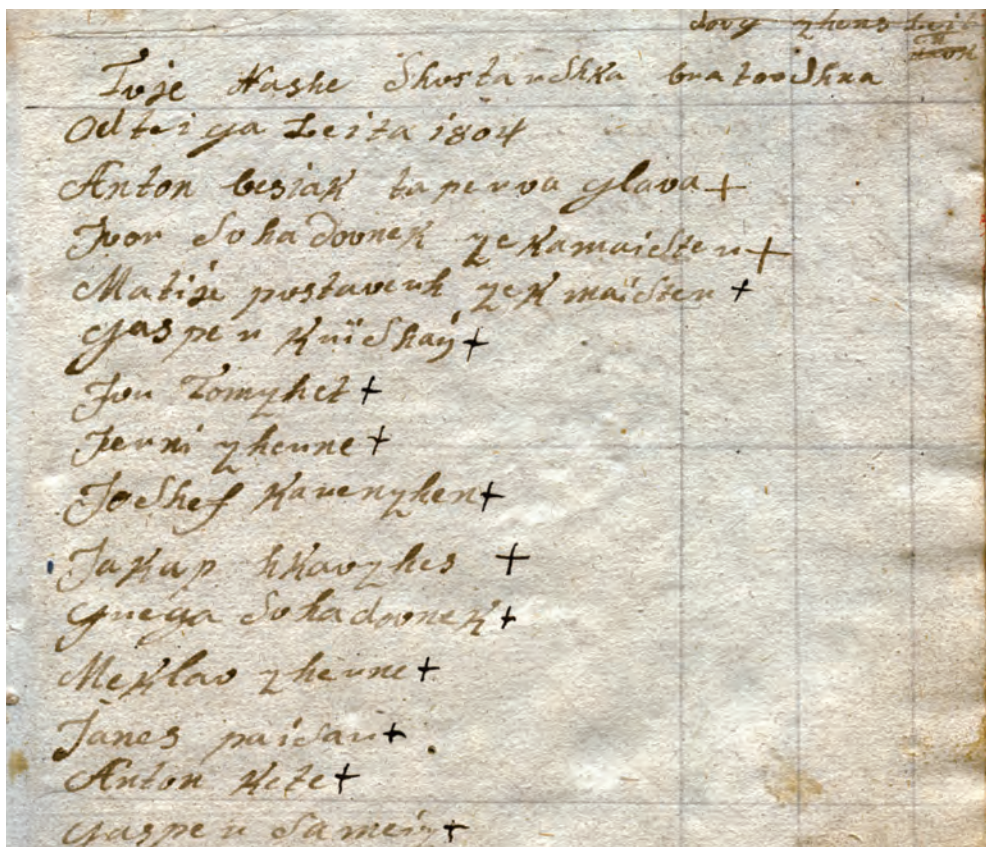 dovg zhens
Tuje Nashe Shustarshka bratovshna
Od tei ga Leita 1804
Anton besiak ta perva glava +
Juor Suhadovnek zekamaister +
Matije postaverh zekmaister +
Gasper +
Jur Tomzhet +
Jerni zherne +
Joshef Karenzhen +
Jakup hkavzhes +
Grega Suhadovnek +
Meklav zherne +
Janes paisar +
Anton Kete +
Gasper